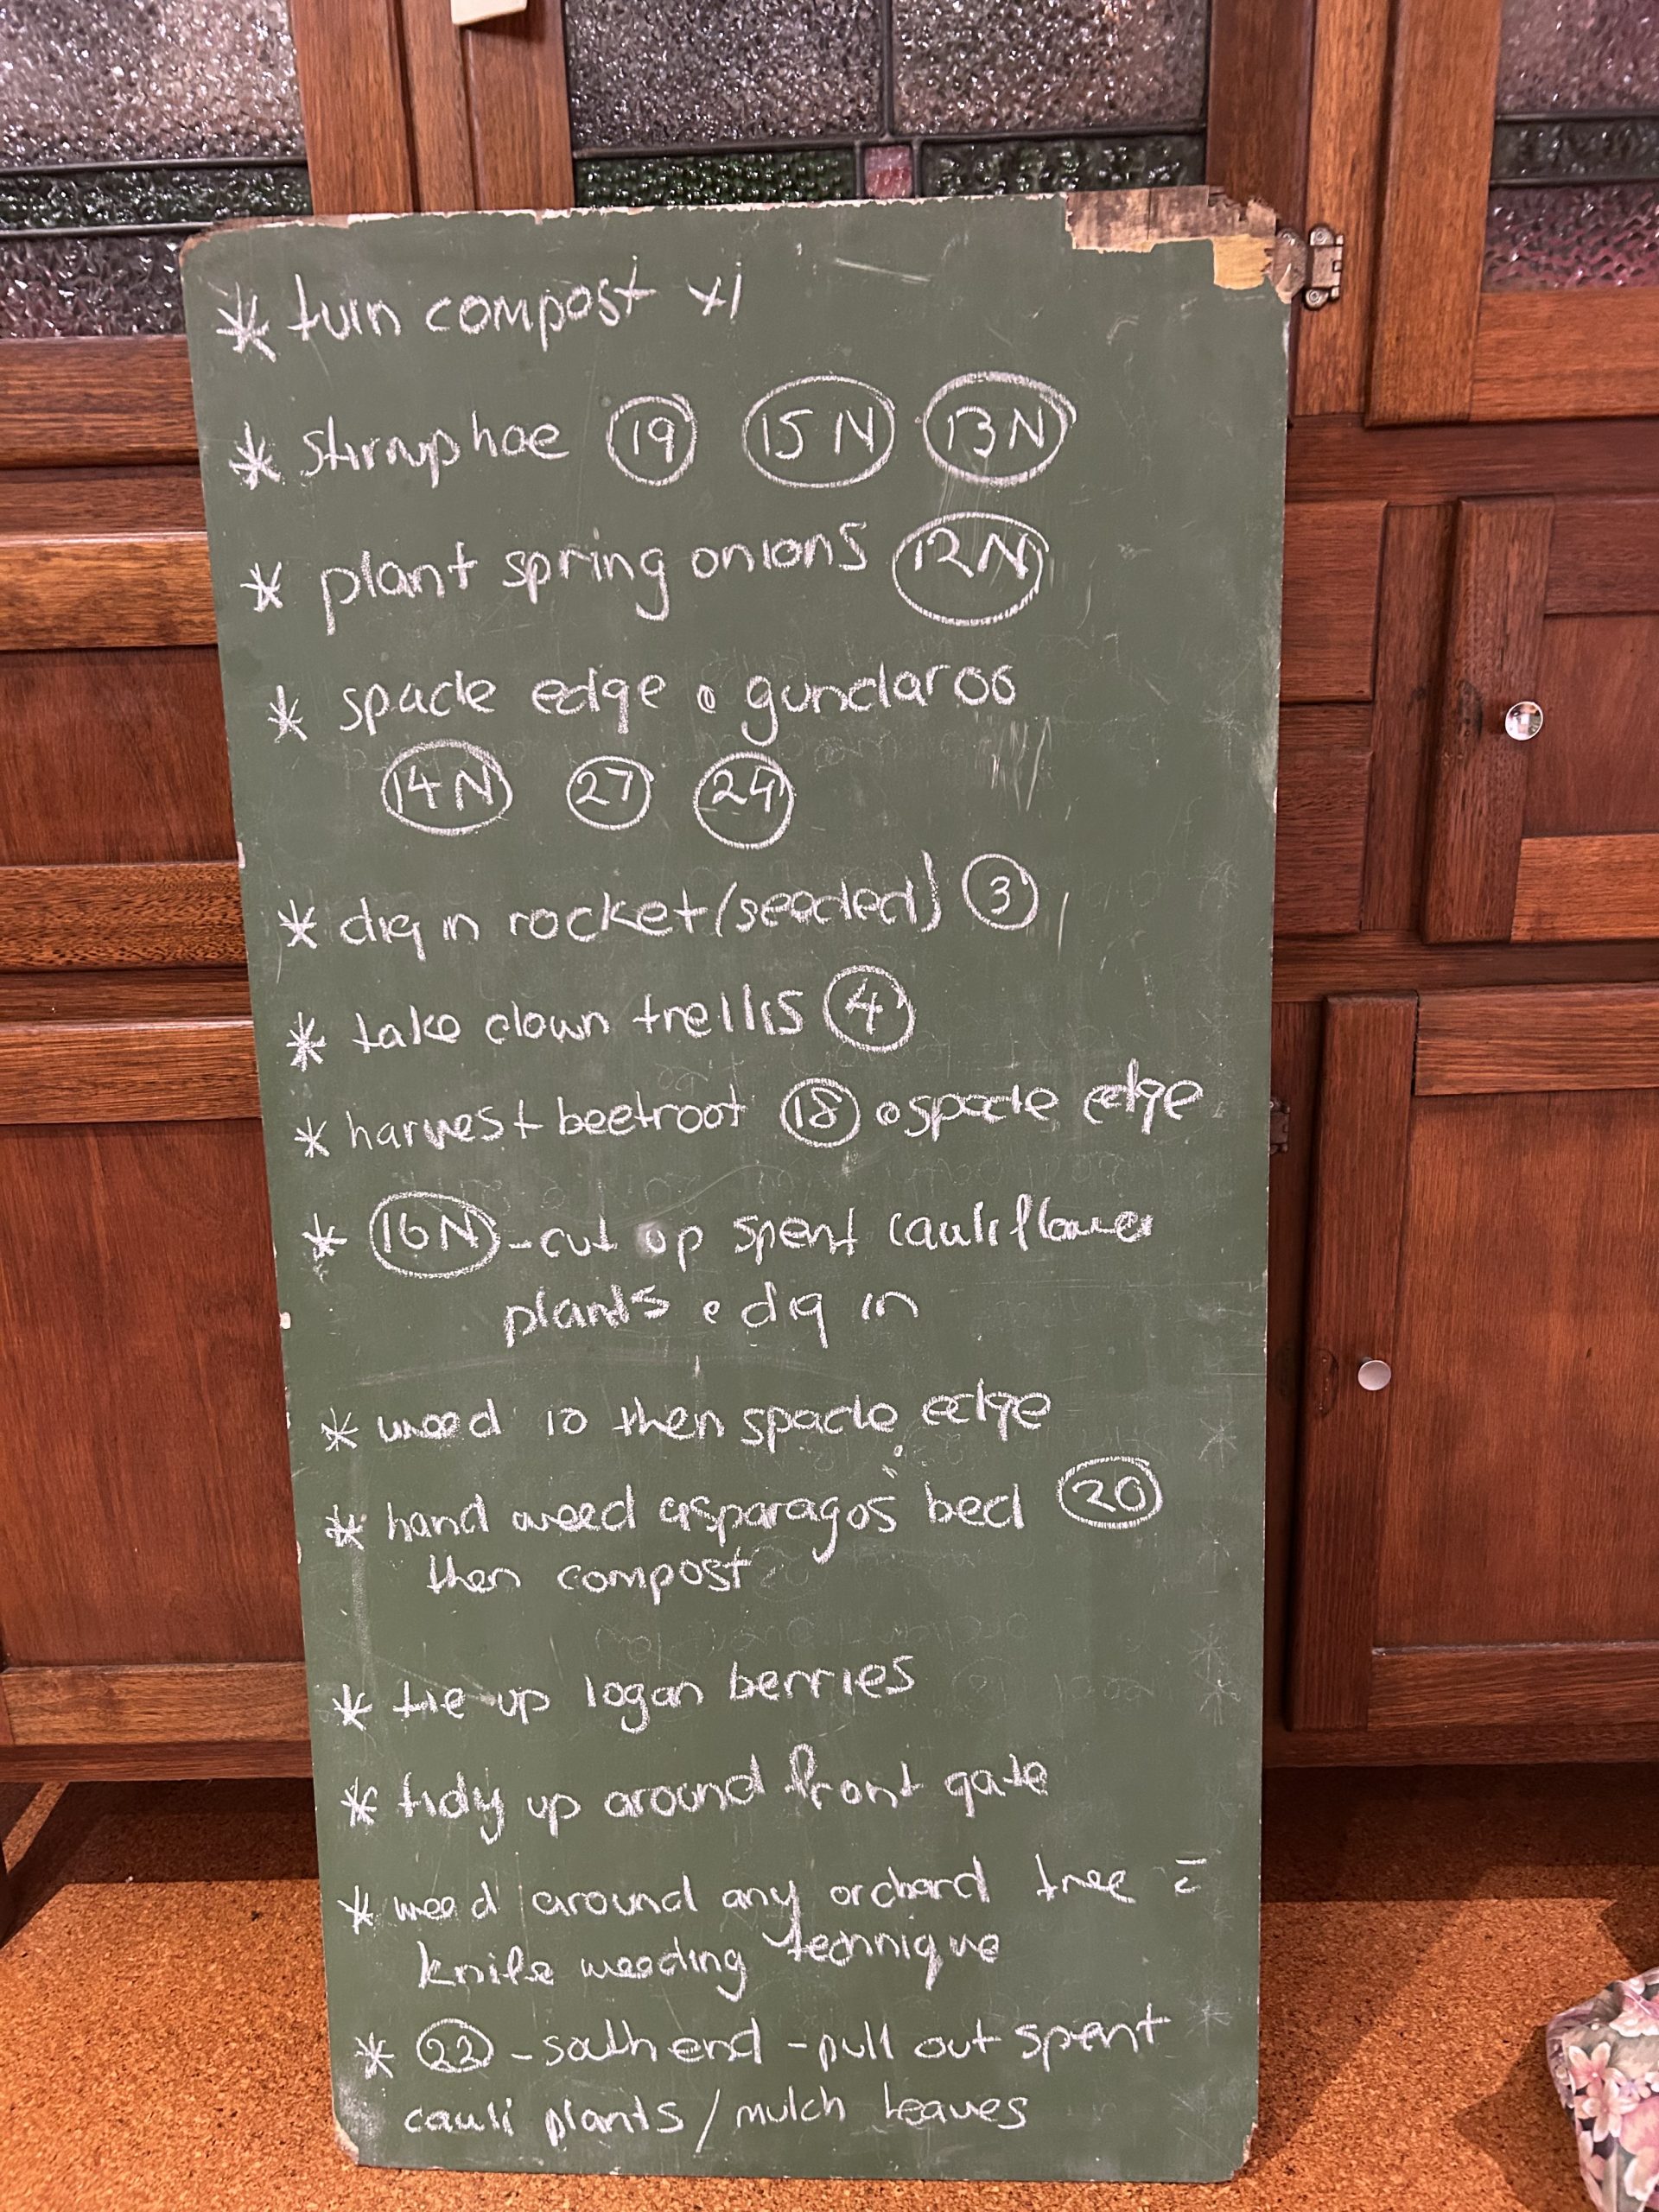 * turn compost x1
* stirrup hoe 19 15N 13N
* plant spring onions 12N
* spade edge e gundaroo
14N 27 24
* dig in rocket (seeded) 3
* take down trellis 4
* harvest beetroot 18 e spade edge
* 16N - cut up spent cauliflower
plants e dig in
* weed 10 then spade edge
* hand weed asparagus bed 20
then compost
* tie up logan berries
* tidy up around front gate
* weed around any orchard tree c̄
knife weeding technique
* 22 - south end - pull out spent
cauli plants / mulch leaves